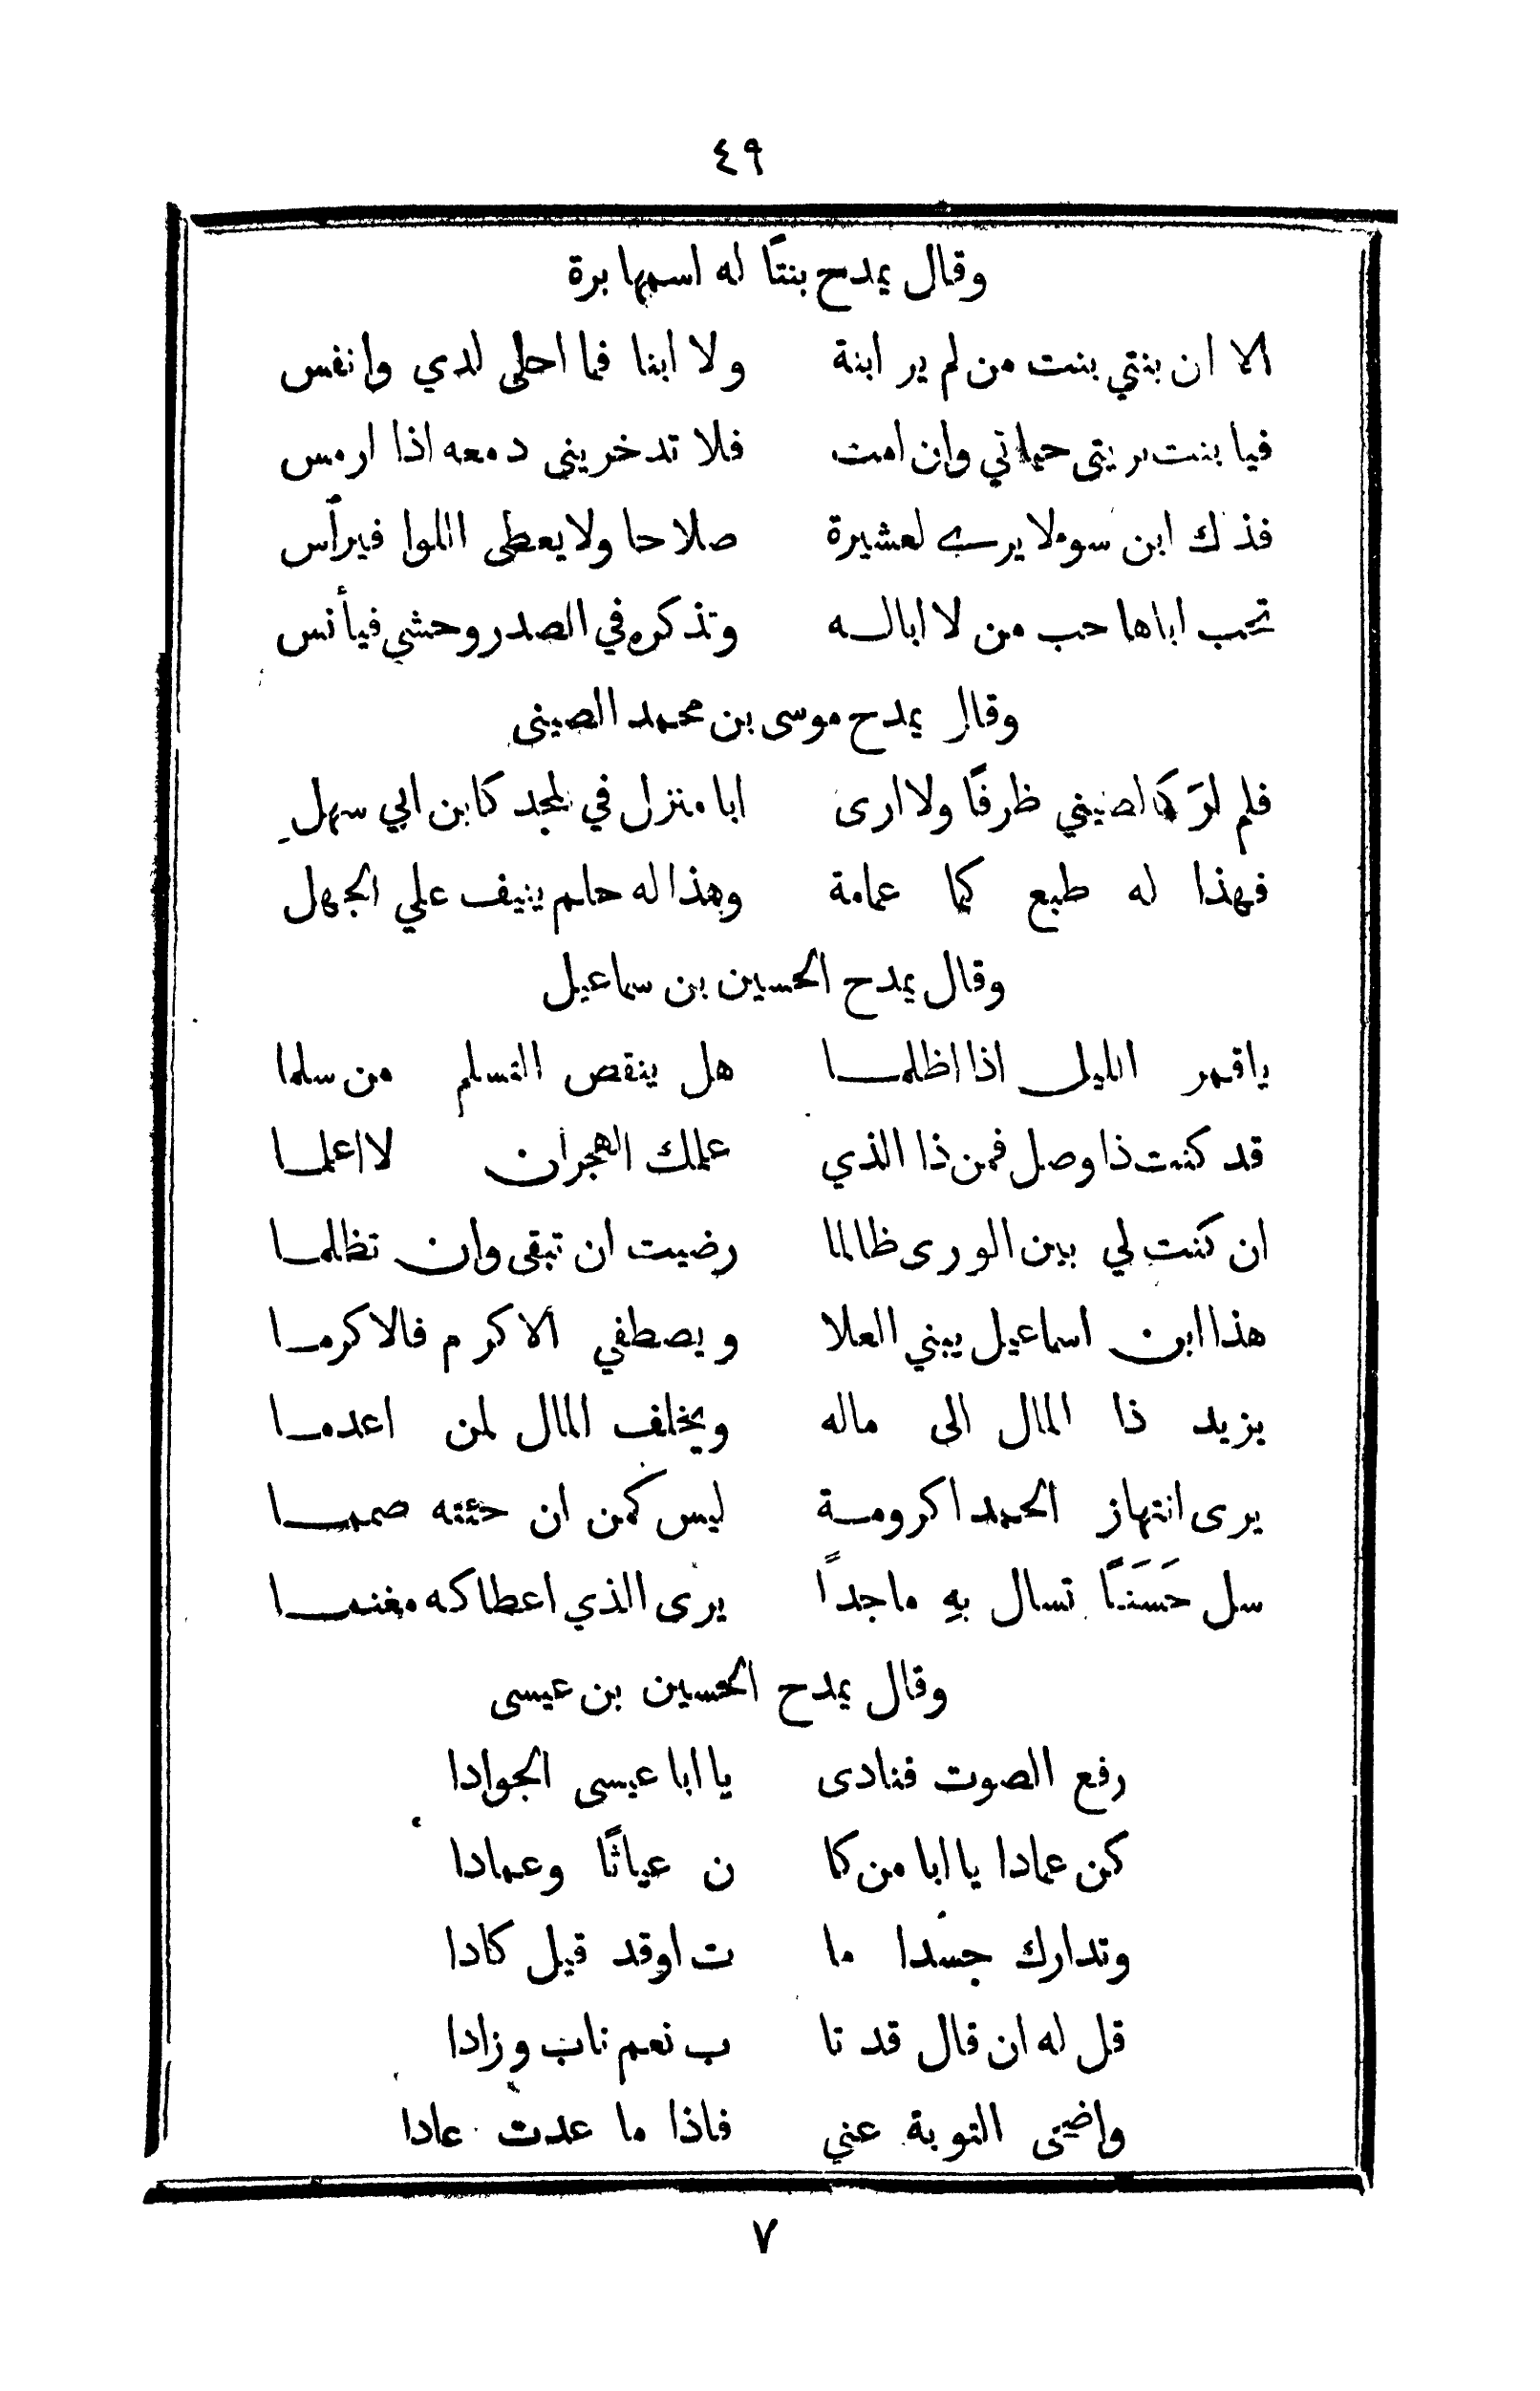 ٤٩
وقال يمدح بنتًا له اسمها برة
الا ان بنتي بنت من لم ير ابنة ولا ابنا فما احلى لدي وانفس
فيا بنت بريتى حياتي وان امت فلا تدخريني دمعه اذا ارمس
فذلك ابن سوء لا يرى لعشيرة صلاحا ولا يعطى اللوا فيرأس
تحب اباها حب من لا ابا له وتذكره في الصدر وحشي فيأنس
وقال يمدح موسى بن محمد الصينى
فلم ارَ كالصيني ظرفًا ولا ارى ابا منزل في المجد كابن ابي سهل
فهذا له طبع كما عمامة وهذا له حلم ينيف علي الجهل
وقال يمدح الحسين بن سماعيل
ياقمر الليل اذا اظلما هل ينقص التسلم من سلما
قد كنت ذا وصل فمن ذا الذي علمك الهجران لا اعلما
ان كنت لي بين الورى ظالما رضيت ان تبقى وان تظلما
هذا ابن اسماعيل يبني العلا ويصطفي الاكرم فالاكرما
يزيد ذا المال الى ماله ويخلف المال لمن اعدما
يرى انتهاز الحمد اكرومة ليس كمن ان جئته صمما
سل حَسَنًا تسال بهِ ماجدًا يرى الذي اعطاكه مغنما
وقال يمدح الحسين بن عيسى
رفع الصوت فنادى يا ابا عيسى الجوادا
كن عمادا يا ابا من كا ن غياثًا وعمادا
وتدارك جسدا ما ت اوقد قيل كادا
قل له ان قال قد تا ب نعم تاب وزادا
التوبة عني فاذا ما عدت عادا
٧